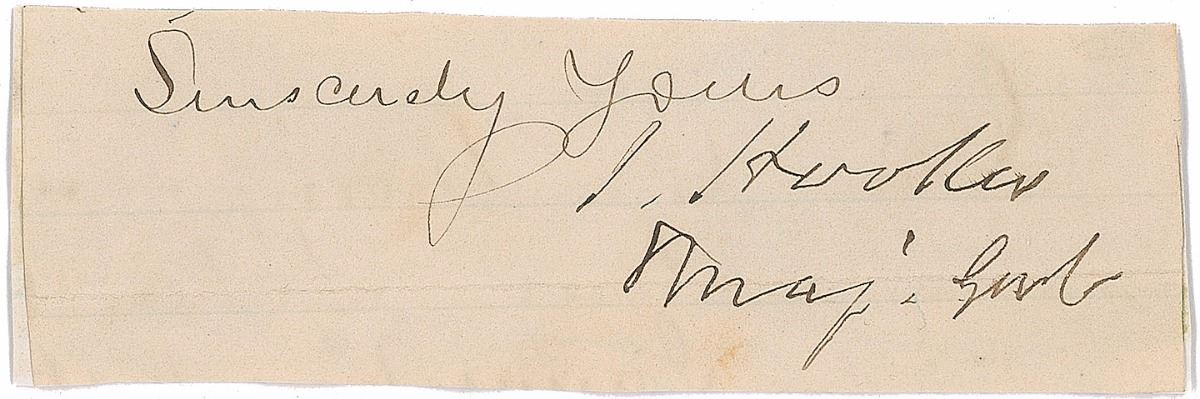 Sincerely Yours
J. Hooker
Maj. Genl